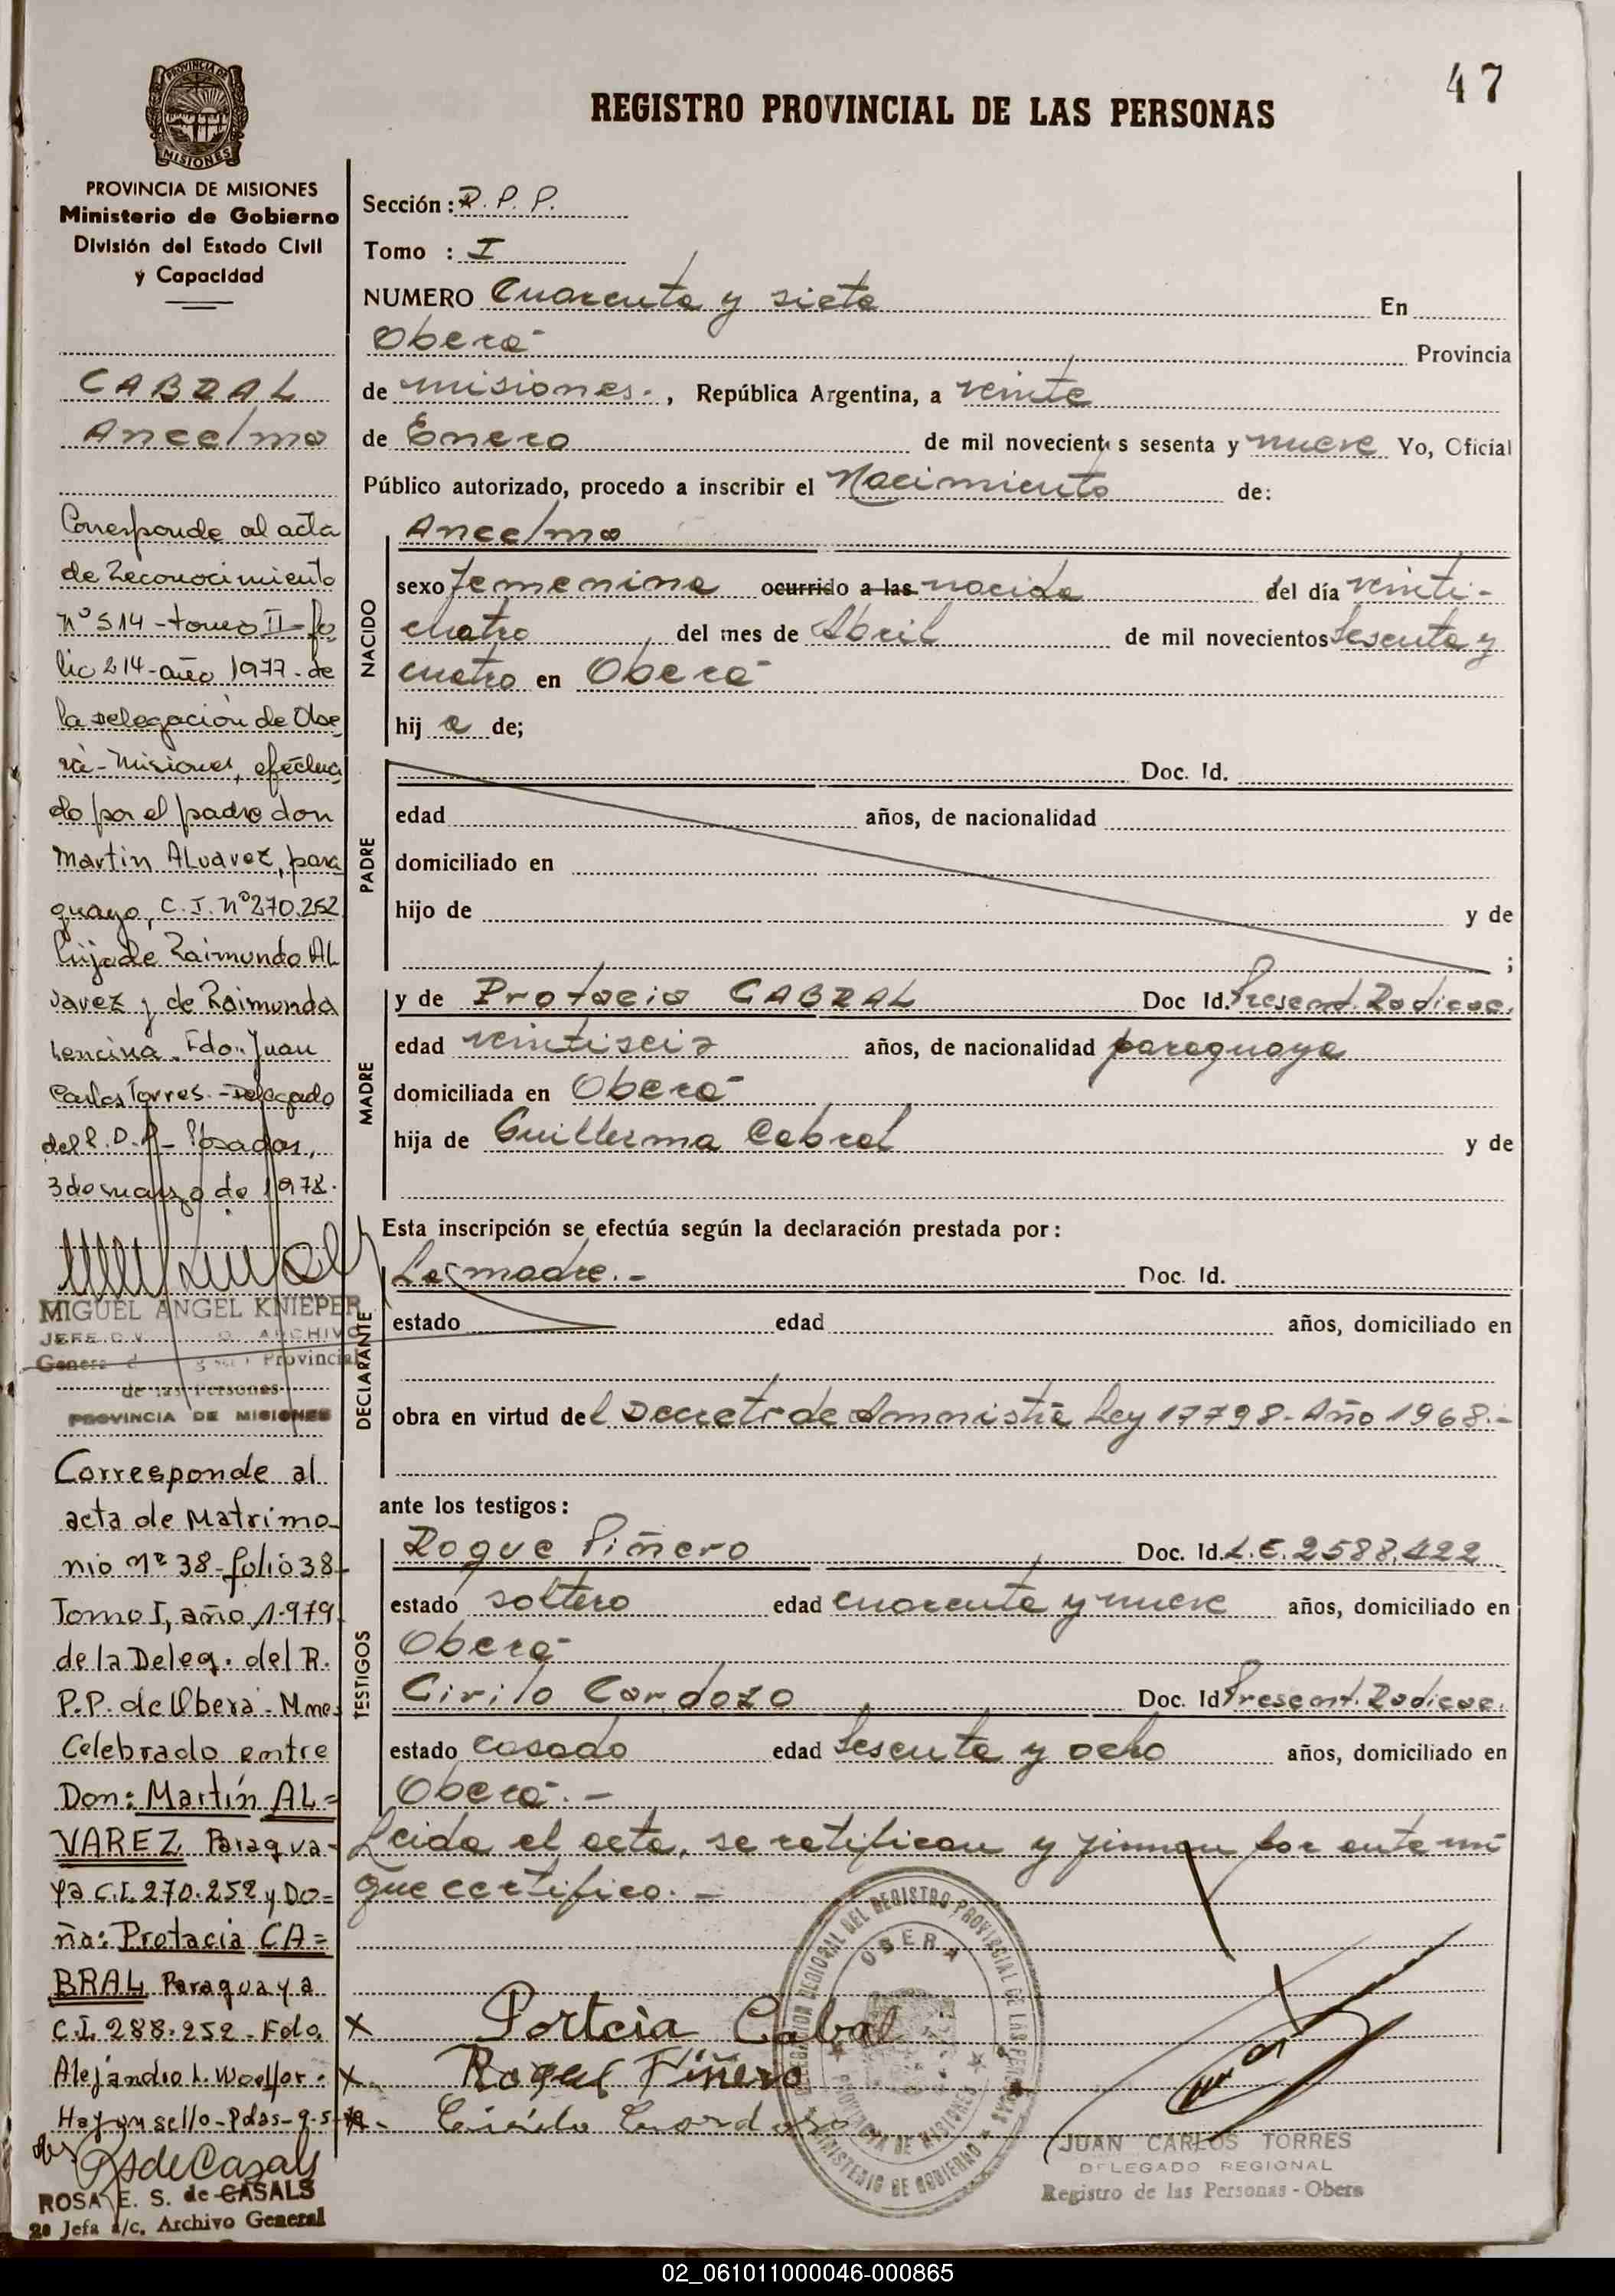 47
REGISTRO PROVINCIAL DE LAS PERSONAS
PROVINCIA DE MISIONES
PROVINCIA DE MISIONES
Ministerio de Gobierno
División del Estado Civil
y Capacidad
CABRAL
Ancelma
Corresponde al acta
de Reconocimiento
nº 514 - tomo II - fo
lio 214 - año 1977 - de
la Delegación de Obe
rá - Misiones, efectua
do por el padre don
Martin ALvarez, para
guayo, C.I. Nº 270.252
hijo de Raimundo AL
varez y de Raimunda
Lencina. Fdo: Juan
Carlos Torres. - Delegado
del R.P.P - Posadas,
3 de marzo de 1978.
MIGUEL ANGEL KNIEPER
JEFE ARCHIVO
Provincial
de las Personas
PROVINCIA DE MISIONES
Corresponde al
acta de Matrimo
nio Nº 38 - folio 38 -
Tomo I, año 1.979
de la Deleg. del R.
P.P. de Oberá - Mnes
Celebrado entre
Don: Martín AL=
VAREZ Paragua-
ya C.I. 270.252 y Do=
ña: Protacia CA=
BRAL Paraguaya
C.I. 288.252 - Fdo.
Alejandro L.
Hay un sello - Pdas - 9-5-79
RS de Casals
ROSA E. S. de CASALS
2º Jefa a/c. Archivo General
Sección : R. P. P.
Tomo : I
NUMERO Cuarenta y siete En
Oberá Provincia
de misiones. , República Argentina, a veinte
de Enero de mil novecientos sesenta y nueve Yo, Oficial
Público autorizado, procedo a inscribir el Nacimiento de:
NACIDO
Ancelma
sexo femenina ocurrido a las nacida del día veinti-
cuatro del mes de Abril de mil novecientos Sesenta y
cuatro en Oberá
hij a de;
PADRE
Doc. Id.
edad años, de nacionalidad
domiciliado en
hijo de y de
;
MADRE
y de Protacia CABRAL Doc Id. Present. Radicac.
edad veintiseis años, de nacionalidad paraguaya
domiciliada en Oberá
hija de Guillerma Cabral y de
Esta inscripción se efectúa según la declaración prestada por :
DECLARANTE
La madre. - Doc. Id.
estado edad años, domiciliado en
obra en virtud del Decreto de Amnistía Ley 17798 - Año 1968.-
ante los testigos :
TESTIGOS
Roque Piñero Doc. Id. L.E. 2588.422
estado soltero edad cuarenta y nueve años, domiciliado en
Oberá
Cirilo Cardozo Doc. Id Present. Radicac.
estado casado edad Sesenta y ocho años, domiciliado en
Oberá. -
Leida el acta, se ratifican y firman por ante mi
que certifico. -
DELEGACION REGIONAL DEL REGISTRO PROVINCIAL DE LAS PERSONAS
OBERA
PROVINCIA DE MISIONES
MINISTERIO DE GOBIERNO
x Portcia Cabal
x Roque Piñero
x Cirilo Cardoso
JUAN CARLOS TORRES
DELEGADO REGIONAL
Registro de las Personas - Obera
02_061011000046-000865